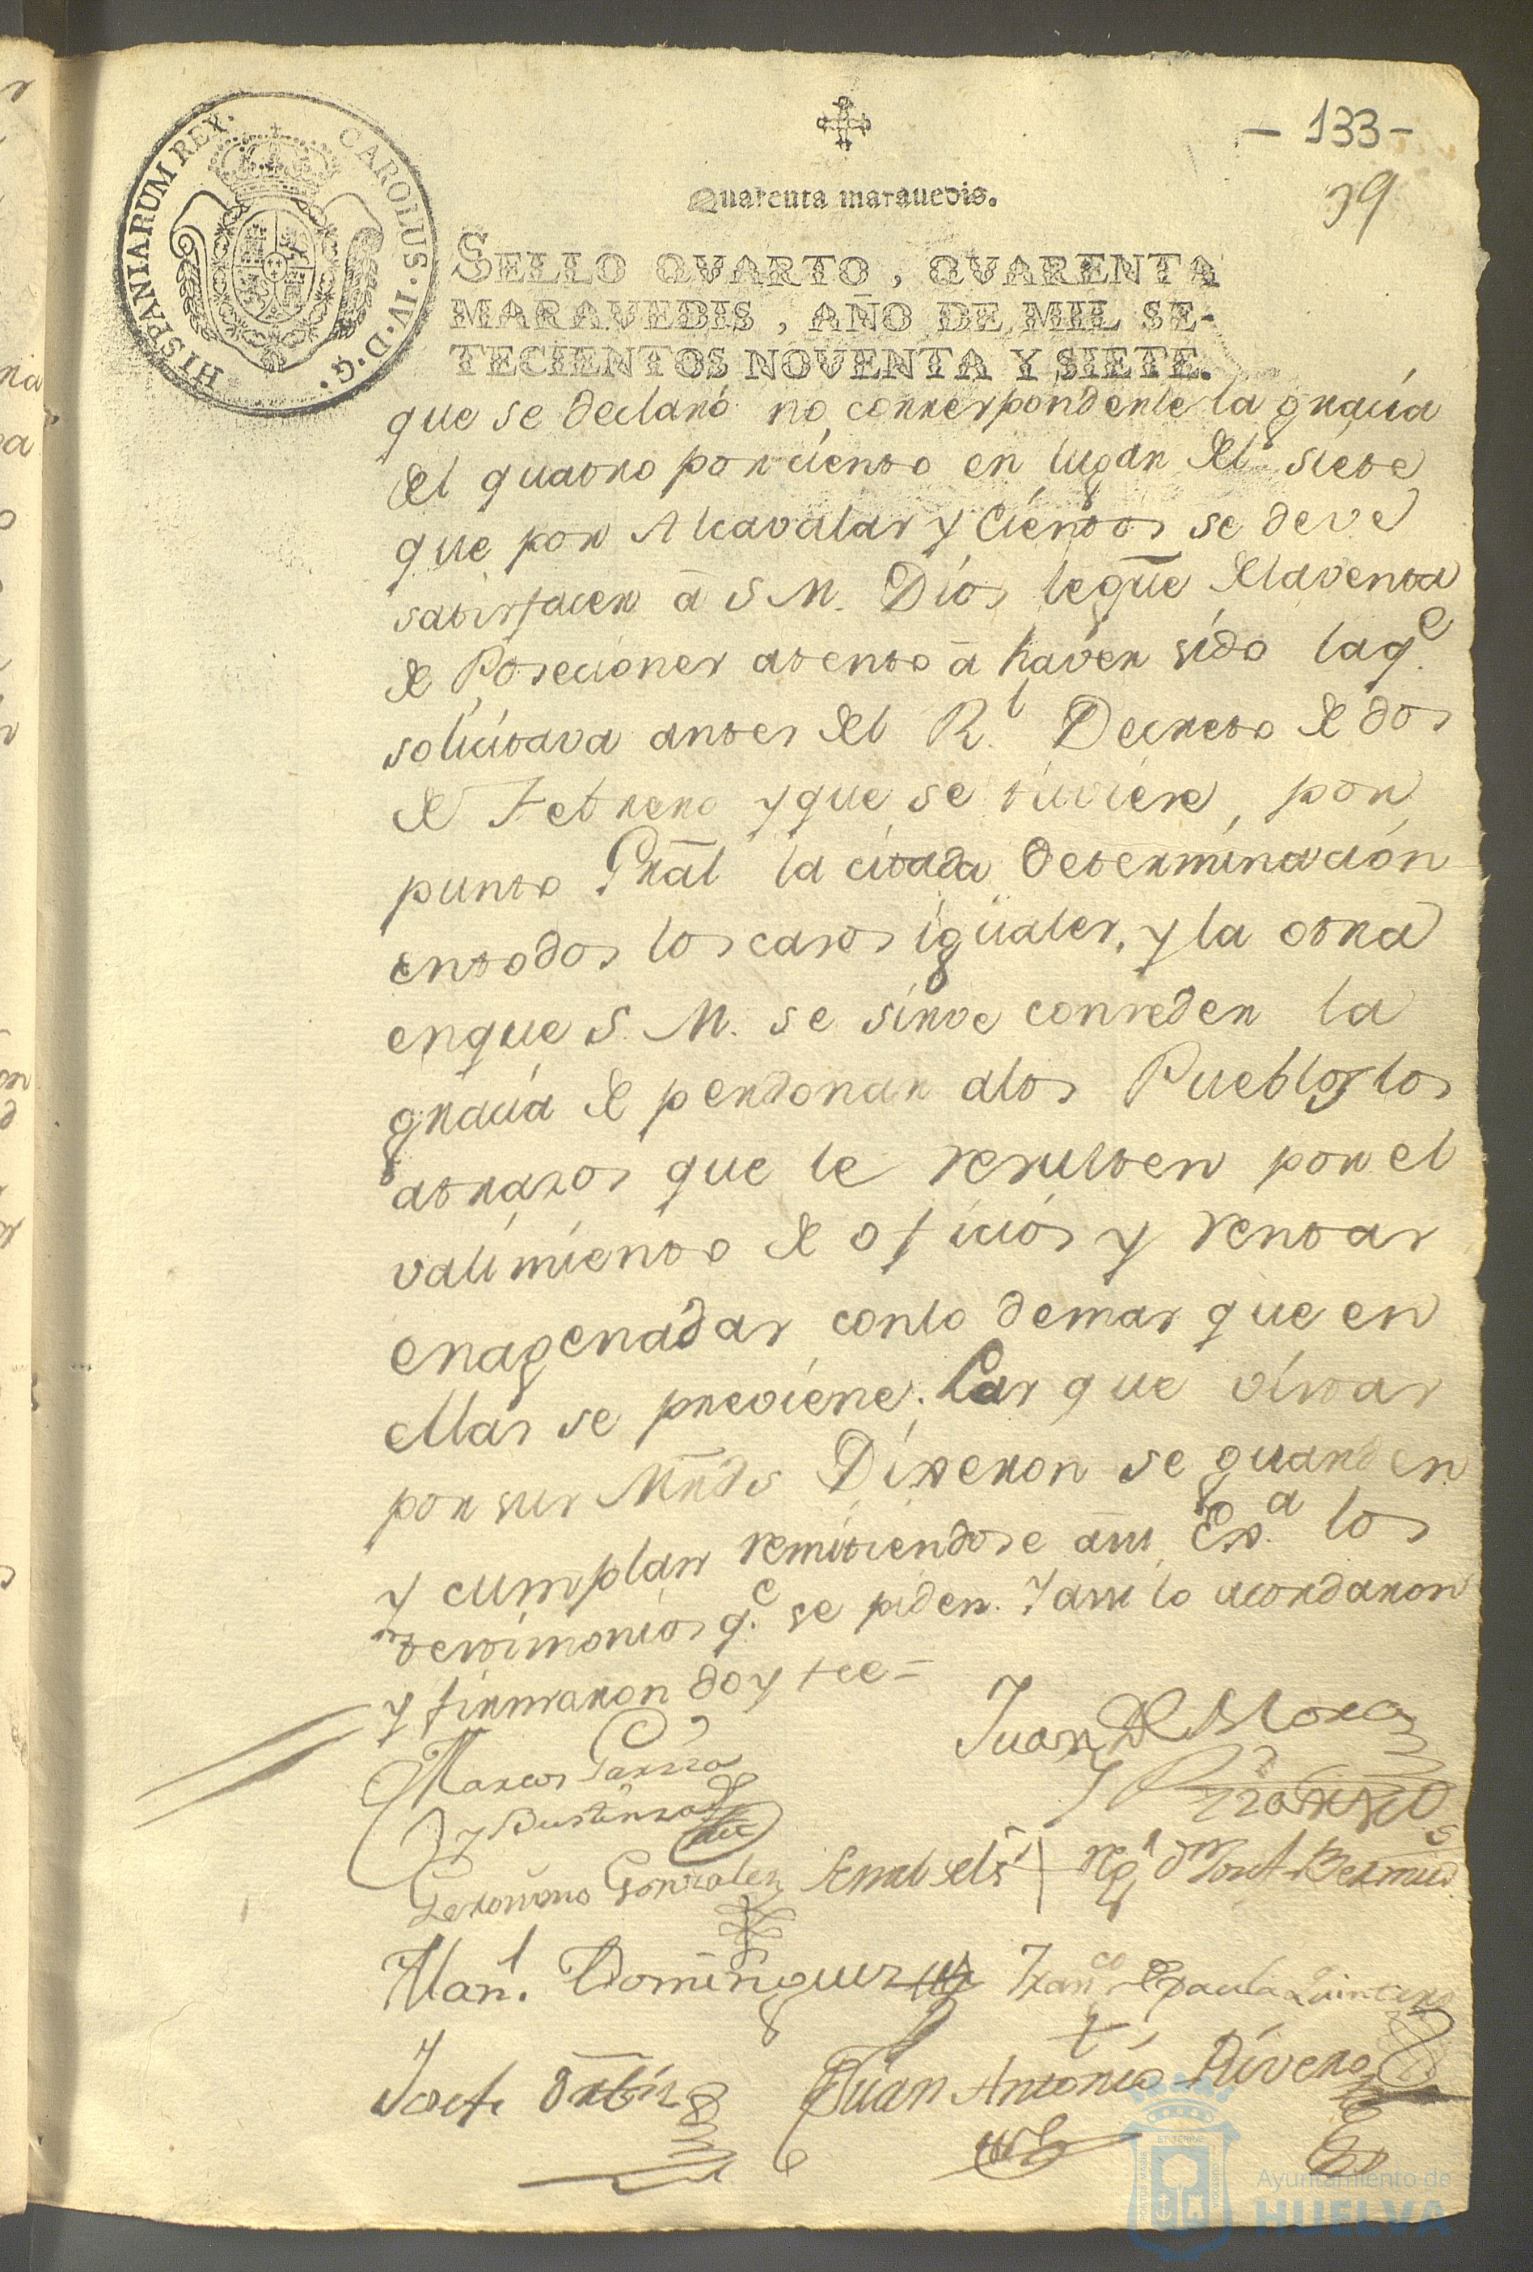 HISPANIARUM REX. CAROLUS·IV·D·G·
- 133 -
39
Quarenta maravedis.
SELLO QVARTO, QVARENTA
MARAVEDIS, AÑO DE MIL SE-
TECIENTOS NOVENTA Y SIETE.
que se declaró no correspondenle la gracia
del quatro por ciento en lugar del siete
que por Alcavalas y Cientos se deve
satisfacer a S M. Dios legue. dela venta
de Posesiones atento a haver sido laqe.
solicitava antes del Rl. Decreto de dos
de Febrero y que se tuviere, por
punto Gral la citada determinación
entodos los casos iguales, y la otra
enque S. M. se sirve conceder la
gracia de perdonar alos Pueblos los
atrazos que le resulten por el
valimiento de oficios y rentas
enagenadas conlo demas que en
ellas se previene. Las que vistas
por sus Mrds Dixeron se guarden
y cumplan remitiendose a su Exa. los
testimonios qe. se piden. Y assi lo acordaron
y firmaron doy fee =
Juan de Mora
Marcos Garcia
y Bustinza
y
Geronimo Gonzalez
Josef Bermud
Manl. Dominguez
Franco de Paula Quintero
Josef Ortiz
Juan Antonio Rivero
Ayuntamiento de
HUELVA